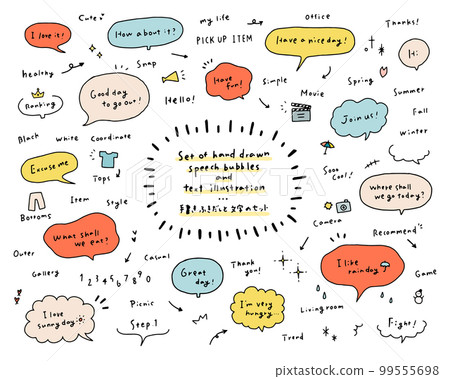 I love it!
Cute♪
How about it?
my life
PICK UP ITEM
Office
Have a nice day!
Thanks!
Hi
healthy
Snap
Ranking
Good day
to go out!
Hello!
Have
fun!
Simple
Movie
Spring
Summer
Join us!
Fall
Winter
Black
White
Coordinate
Excuse me
Tops
Set of hand drawn
speech bubbles
and
text illustration
...
手書きふきだしと文字のセット
Sooo
Cool!
Where shall
we go today?
Bottoms
Item
Style
Camera
What shall
we eat?
Recommend
Outer
Casual
Gallery
1 2 3 4 5 6 7 8 9 0
Great
day!
Thank
you!
I like
rainday
Game
I love
sunnyday
Picnic
Step 1
I'm very
hungry...
Livingroom
Trend
Fight!
PIXTA
99555698